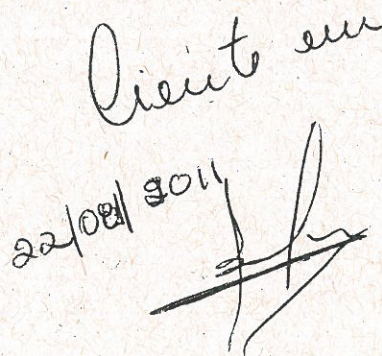 Ciente em
22/08/2011